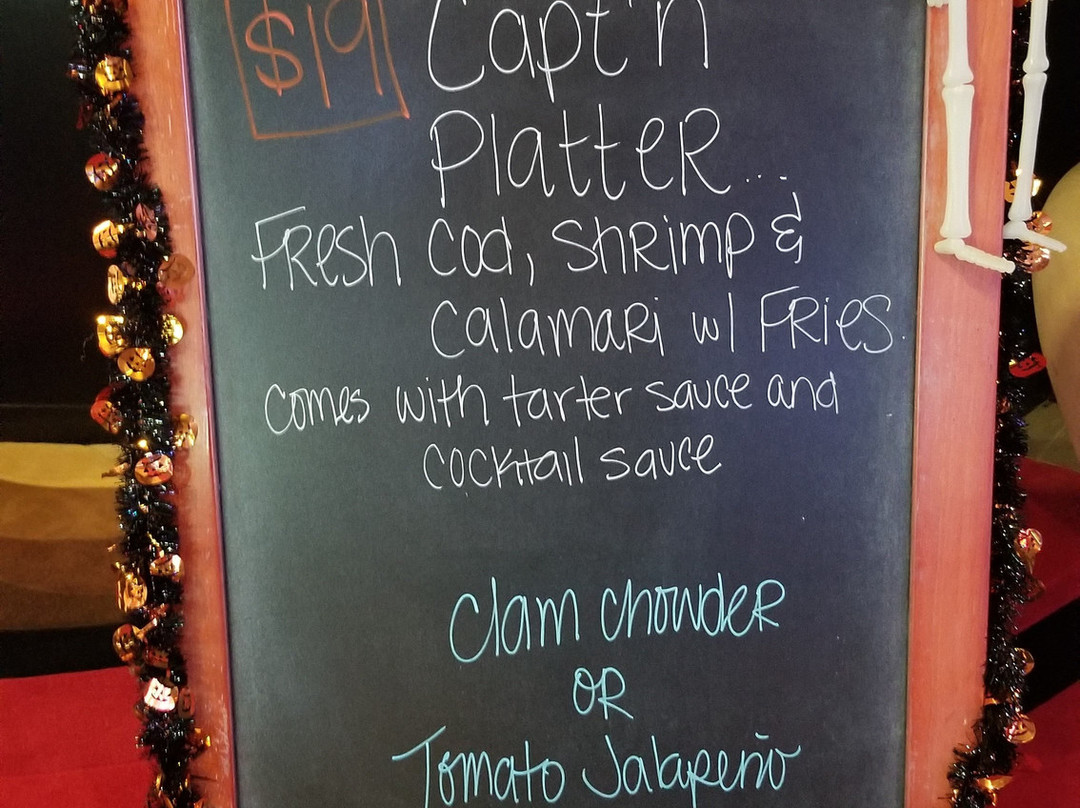 $19
Capt'n
Platter...
Fresh Cod, Shrimp &
Calamari w/ Fries.
comes with tarter sauce and
cocktail sauce
Clam Chowder
OR
Tomato Jalapeño